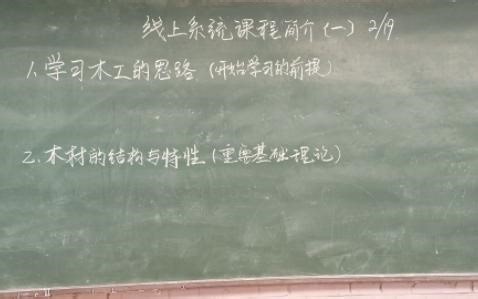 线上系统课程简介(一) 2/19
1、学习木工的思路(开始学习的前提)
2、木材的结构与特性(重要基础理论)